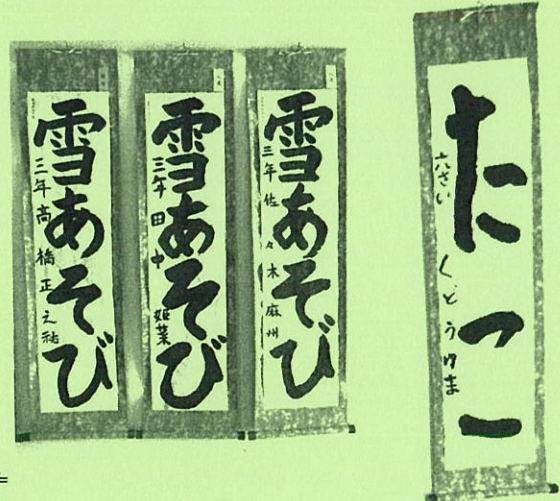 雪あそび
三年 高橋正之祐
雪あそび
三年 田中姫菜
雪あそび
三年 佐々木麻州
たこ
六さい くどうゆま